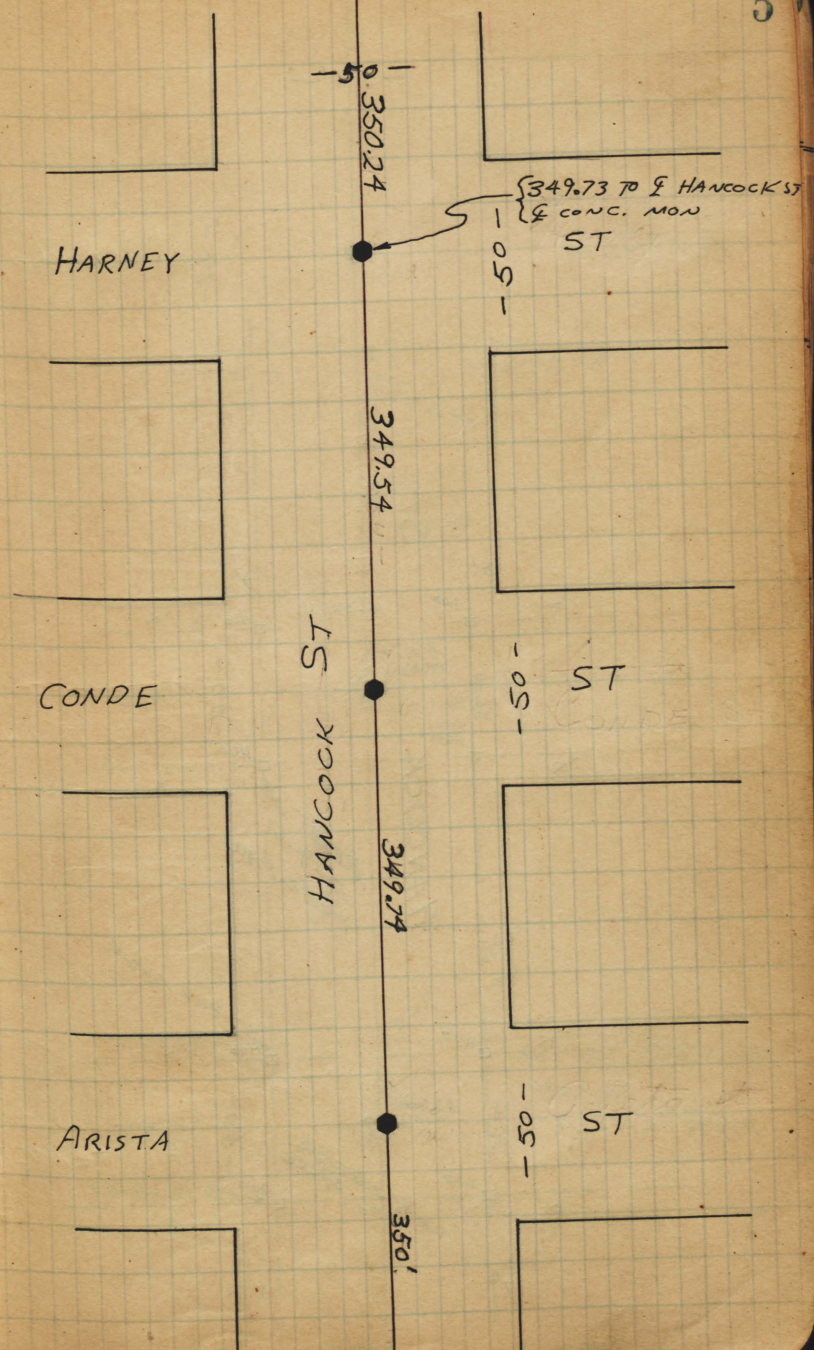 5
-50-
350.24
349.73 TO ℄ HANCOCK ST
℄ CONC. MON
HARNEY
-50-
ST
349.54
HANCOCK ST
CONDE
-50-
ST
349.74
ARISTA
-50-
ST
350'